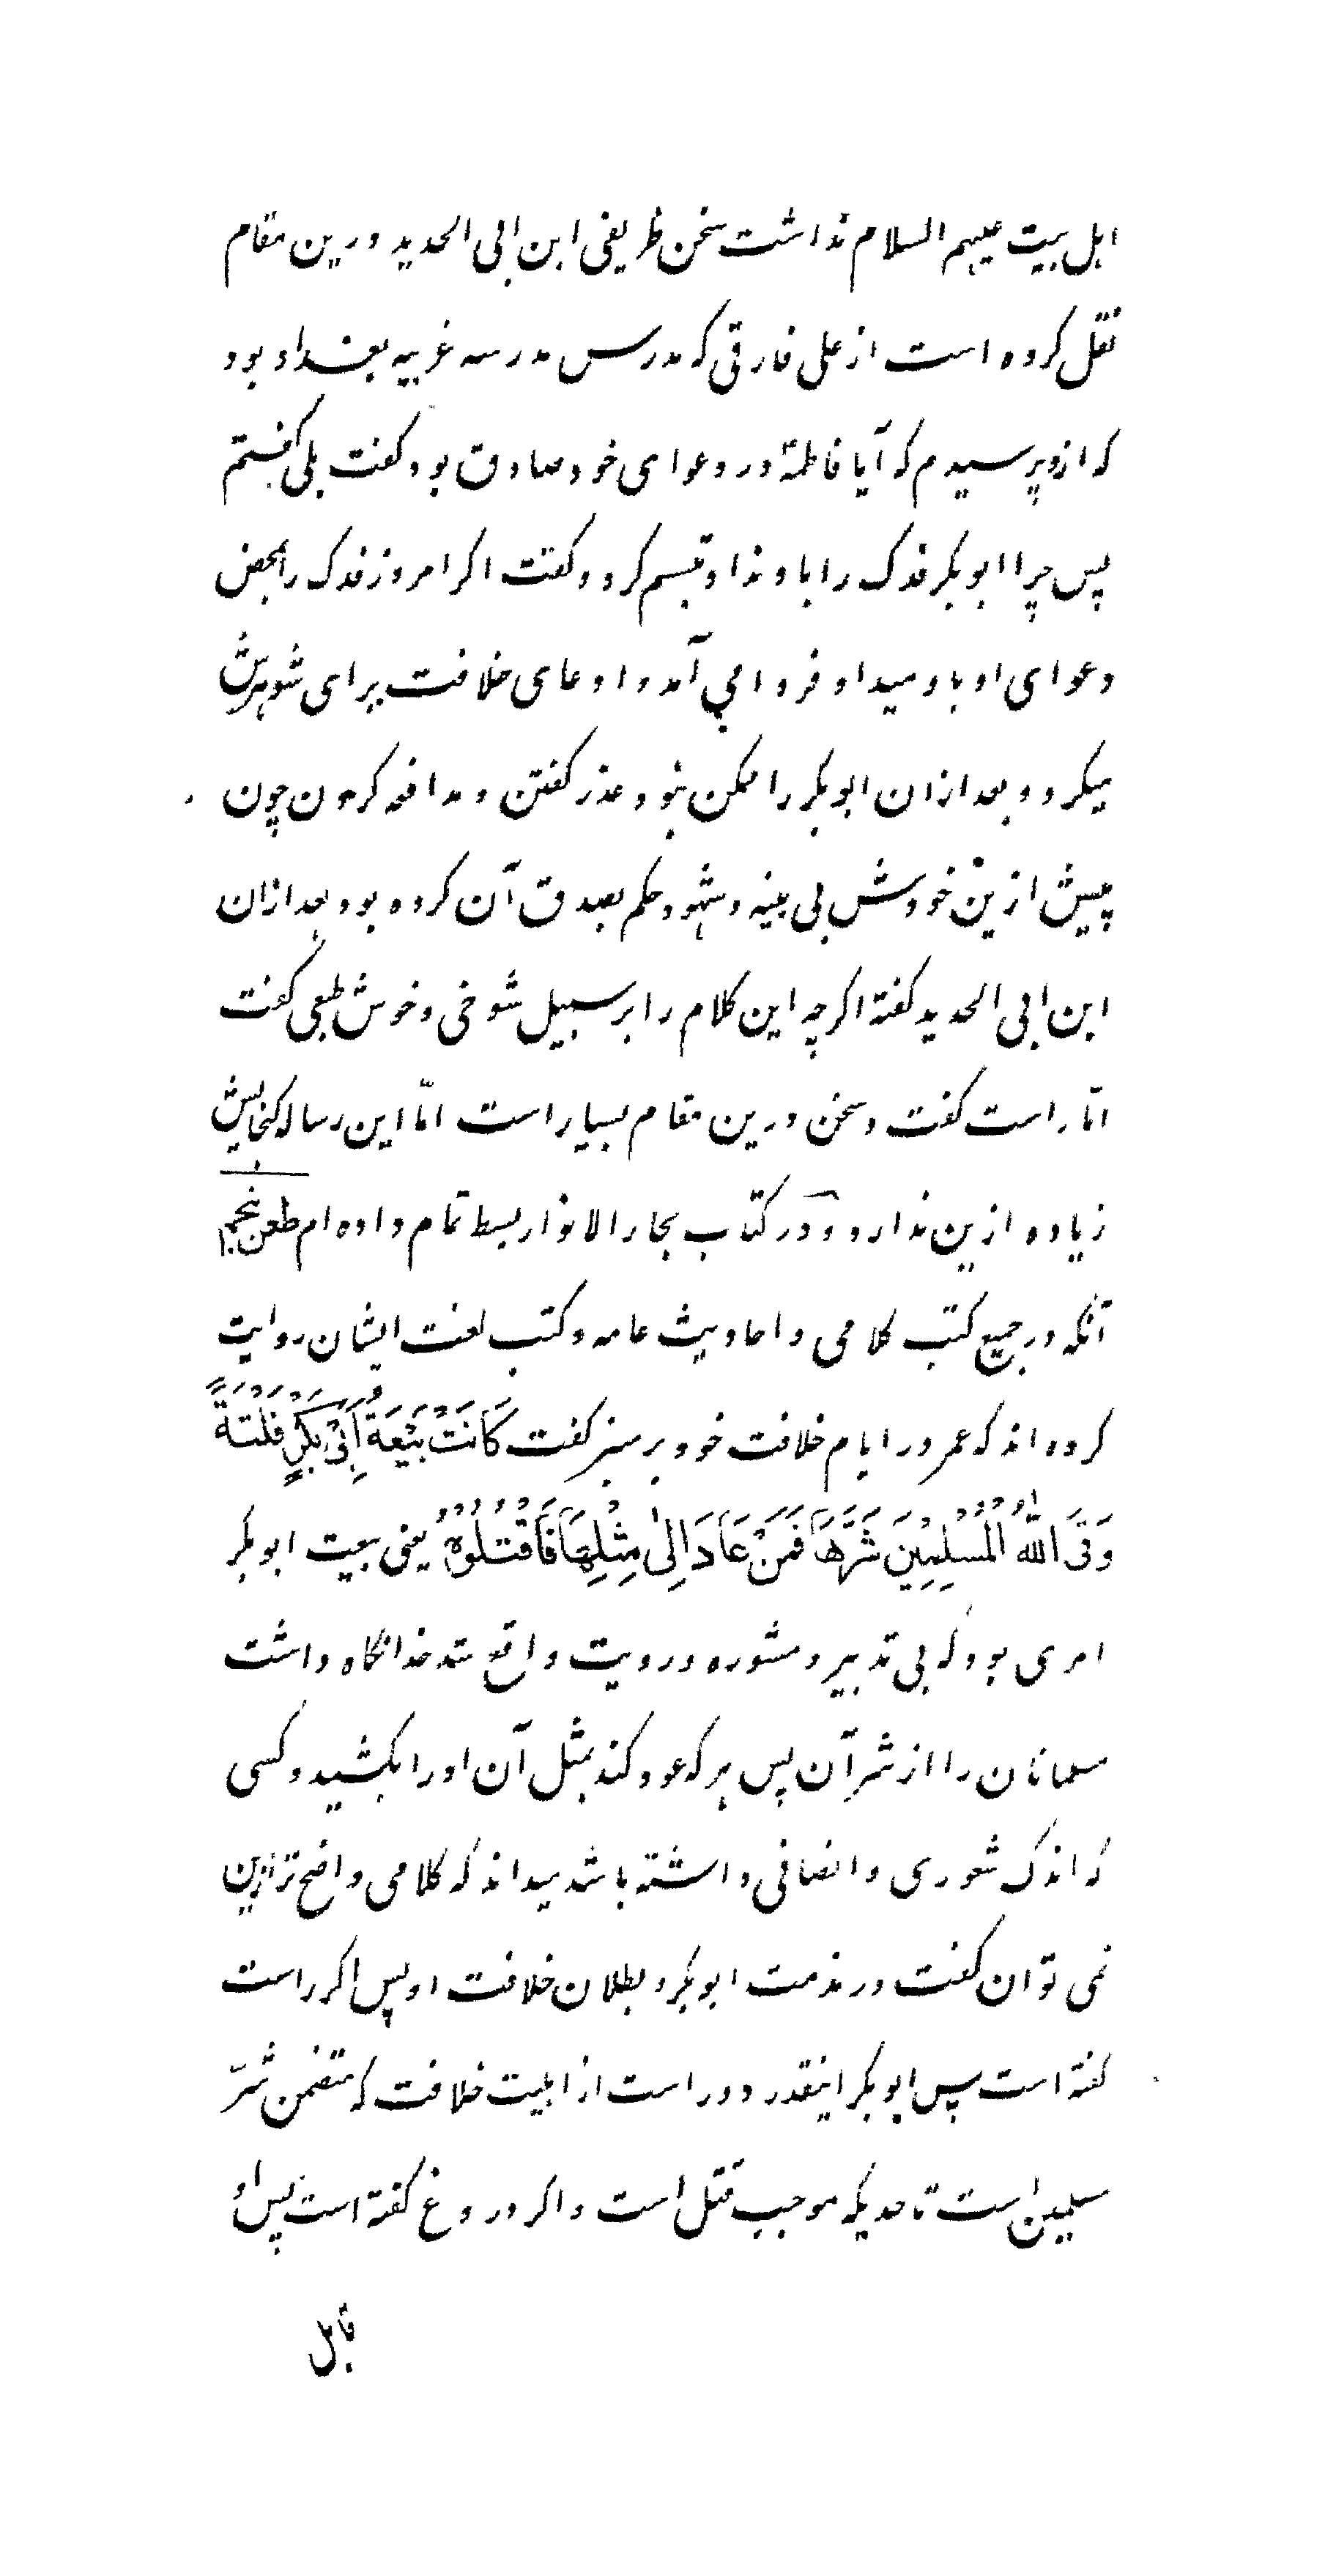 اہل بیت علیہم السلام نداشت سخن ظریفی ابن ابی الحدید درین مقام
نقل کرده است از علی فارقی که مدرس مدرسه غربیه بغداد بود
که ازو پرسیدم که آیا فاطمهٔ در دعوای خود صادق بود کفت بلی کفتم
پس چرا ابو بکر فدک را باو نداد تبسم کرد و کفت اکر امروز فدک را بمحض
دعوای او باو میداد فردا می آمد و ادعای خلافت برای شوہرش
میکرد و بعد ازان ابو بکر را ممکن نبود عذر کفتن و مدافعه کردن چون
پیش ازین خودش بی بینه و شهود حکم بصدق آن کرده بود بعد ازان
ابن ابی الحدید کفته اکرچه این کلام را بر سبیل شوخی و خوش طبعی کفت
امّا راست کفت و سخن درین مقام بسیار است امّا این رساله کنجایش
زیاده ازین ندارد و در کتاب بحار الانوار بسط تمام داده ام طعن پنجم
آنکه در جمیع کتب کلامی و احادیث عامه و کتب لغت ایشان روایت
کرده اند که عمر در ایام خلافت خود بر منبر کفت كَانَتْ بَيْعَةُ اَبِیْ بَكْرٍ فَلْتَةً
وَقَى اللّٰهُ الْمُسْلِمِيْنَ شَرَّهَا فَمَنْ عَادَ اِلىٰ مِثْلِهَا فَاقْتُلُوْهُ یعنی بیعت ابو بکر
امری بود که بی تدبیر و مشوره و رویت واقع شد خدا نکاه داشت
مسلمانان را از شر آن پس ہر که عود کند بمثل آن او را بکشید و کسی
که اندک شوری و انصافی داشته باشد میداند که کلامی واضح تر ازین
نمی توان کفت در مذمت ابو بکر و بطلان خلافت او پس اکر راست
کفته است پس ابو بکر اینقدر دور است از اہلیت خلافت که متضمن شرّ
مسلمین است تا حدیکه موجب قتل است و اکر دروغ کفته است پس او
قابل